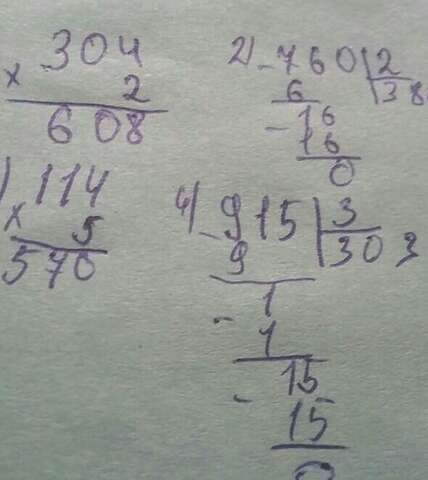 304
× 2
608
2) - 760 | 2
6 38
- 16
16
0
) 114
× 5
570
4) - 915 | 3
9 303
1
- 1
15
- 15
0